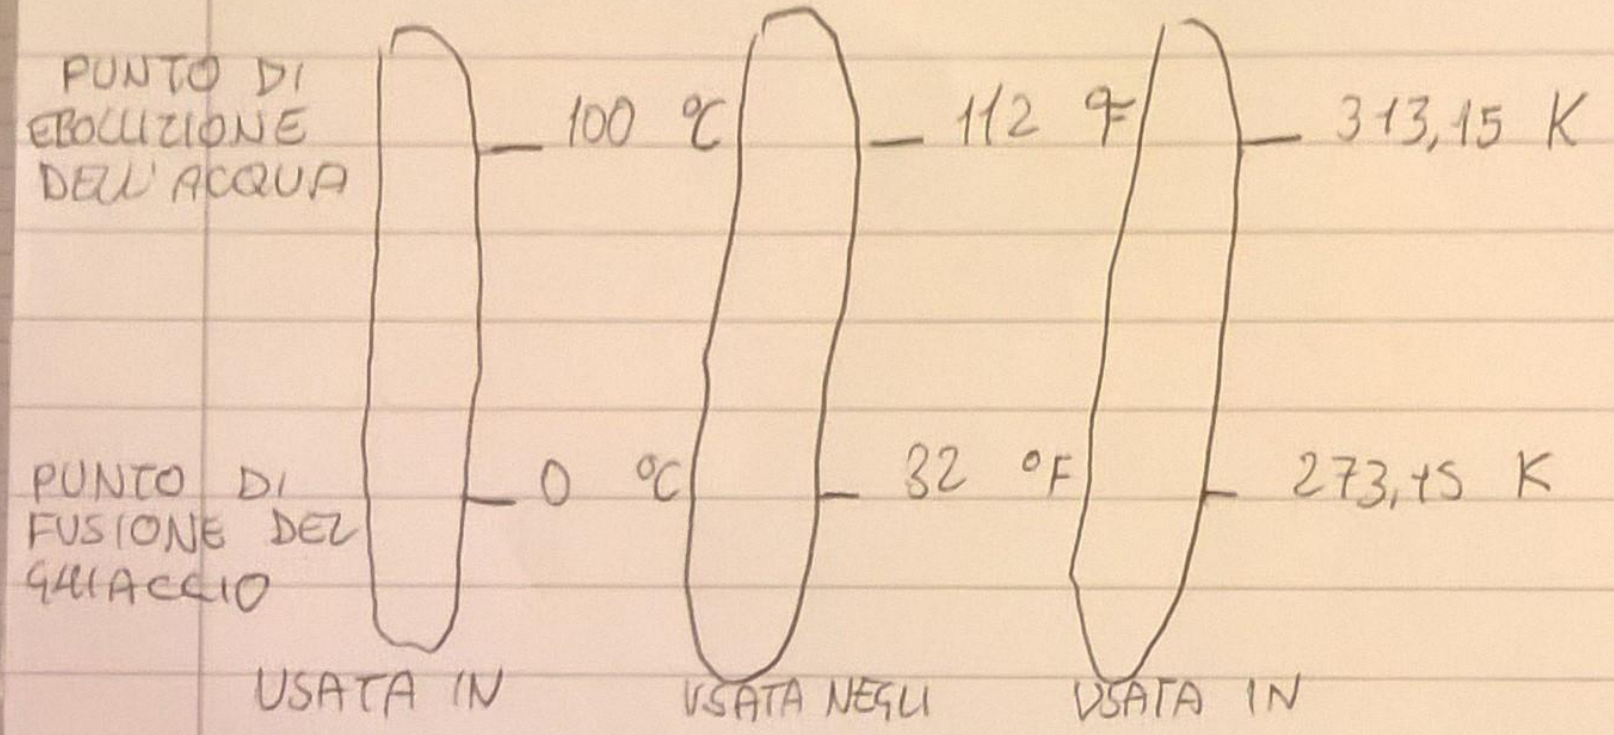 PUNTO DI
EBOLLIZIONE
DELL'ACQUA
100 °C
112 °F
313,15 K
PUNTO DI
FUSIONE DEL
GHIACCIO
0 °C
32 °F
273,15 K
USATA IN
USATA NEGLI
USATA IN